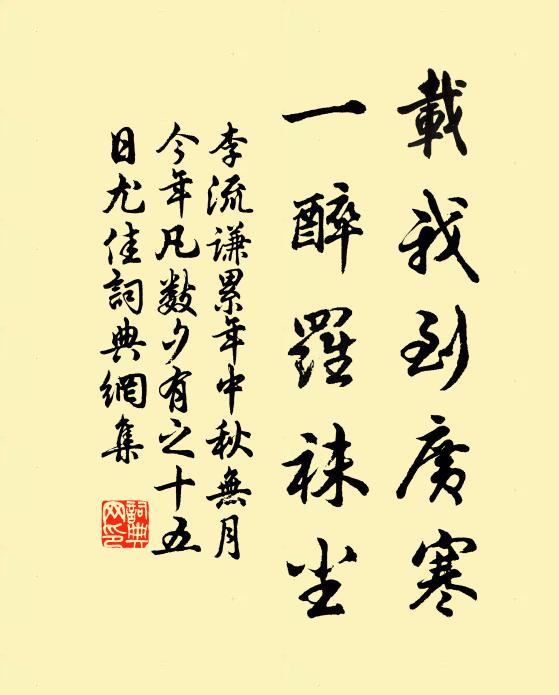 載我到廣寒
一醉羅袜尘
李流謙累年中秋無月
今年凡數夕有之十五
日尤佳詞典網集
詞典网印